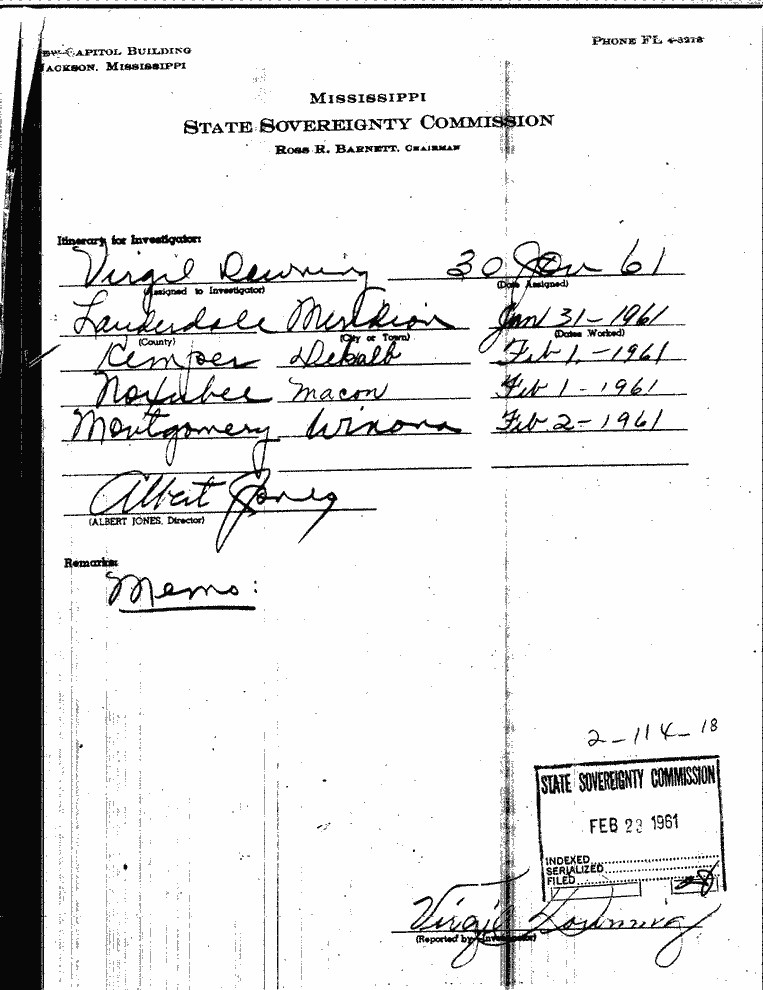 CAPITOL BUILDING
JACKSON, MISSISSIPPI
PHONE FL 4-3218
MISSISSIPPI
STATE SOVEREIGNTY COMMISSION
ROSS R. BARNETT, CHAIRMAN
Itinerary for Investigator:
Virgil Downing 30 Jan 61
(Assigned to Investigator) (Date Assigned)
Lauderdale Meridian Jan 31-1961
(County) (City or Town) (Dates Worked)
Kemper Dekalb Feb 1,-1961
Noxubee Macon Feb 1-1961
Montgomery Winona Feb 2-1961
Albert Jones
(ALBERT JONES, Director)
Remarks:
Memo:
2-114-18
STATE SOVEREIGNTY COMMISSION
FEB 23 1961
INDEXED
SERIALIZED
FILED
Virgil Downing
(Reported by Investigator)